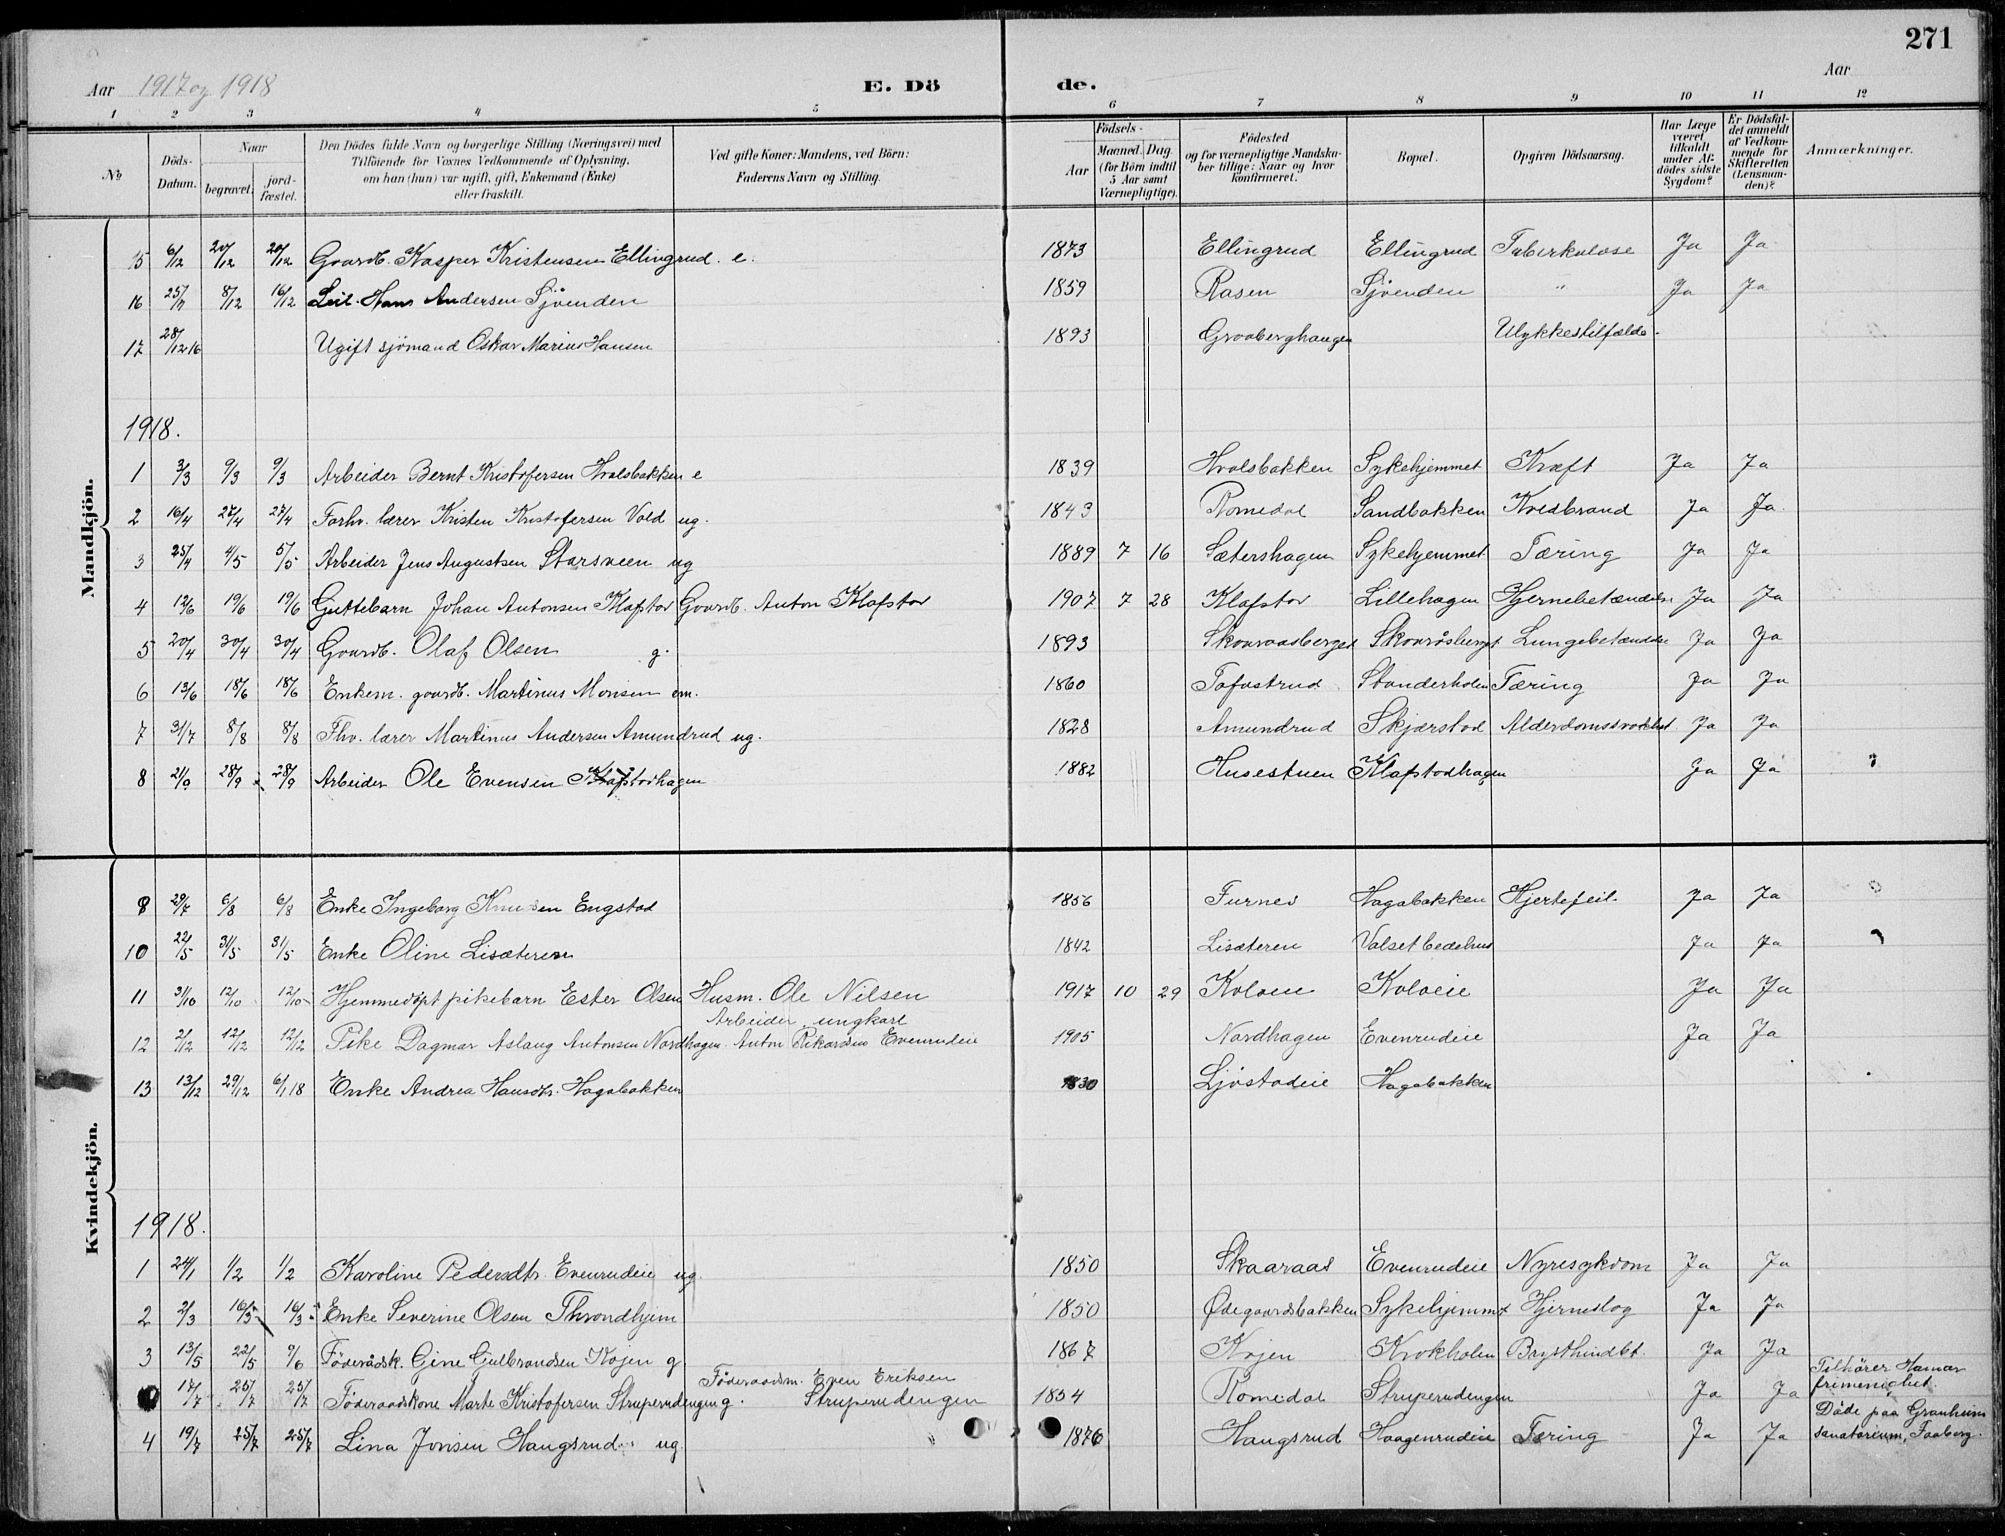 271
Aar 1917 og 1918 E. Dö de. Aar
1 2 3 4 5 6 7 8 9 10 11 12
№ Döds-Datum. Naar begravet. jord-fæstet. Den Dödes fulde Navn og borgerlige Stilling (Næringsvei) med Tilföiende for Voxnes Vedkommende af Oplysning, om han (hun) var ugift, gift, Enkemand (Enke) eller fraskilt. Ved gifte Koner: Mandens, ved Börn: Faderens Navn og Stilling. Födsels- Aar Maaned. Dag. (for Börn indtil 5 Aar samt Værnepligtige). Födested og for værnepligtige Mandska-ber tillige: Naar og hvor konfirmeret. Bopæl. Opgiven Dödsaarsag. Har Læge været tilkaldt under Af-dödes sidste Sygdom? Er Dödsfal-det anmeldt af Vedkom-mende for Skifteretten (Lensman-den)? Anmærkninger.
Mandkjön.
15 6/12 20/12 20/12 Gaardb. Kasper Kristensen Ellingrud. e. 1873 Ellingrud Ellingrud Tuberkulose Ja Ja
16 25/11 8/12 16/12 Hans Andersen Sjöenden 1859 Rasen Sjöenden " Ja Ja
17 28/12 16 Ugift sjömand Oskar Marius Hansen 1893 Graaberghaugen Ulykkestilfælde.
1918.
1 3/3 9/3 9/3 Arbeider Bernt Kristofersen Hvalsbakken e 1839 Hvalsbakken Sykehjemmet Kræft Ja Ja
2 16/4 27/4 27/4 Forhv. lærer Kristen Kristofersen Vold ug. 1843 Romedal Sandbakken Koldbrand Ja Ja.
3 25/4 4/5 5/5 Arbeider Jens Augustsen Storsveen ug 1889 7 16 Sætershagen Sykehjemmet Tæring Ja Ja
4 12/6 19/6 19/6 Guttebarn Johan Antonsen Klafstad Gaardb. Anton Klafstad 1907 7 28 Klafstad Lillehagen Hjernebetændelse Ja Ja
5 20/4 30/4 30/4 Gaardb. Olaf Olsen g. 1893 Skovraasberget Skovråsberget Lungebetændelse Ja Ja
6 13/6 18/6 18/6 Enkem. gaardb. Martinus Monsen em. 1860 Tofastrud Standerholen Tæring Ja Ja
7 31/7 8/8 8/8 Fhv. lærer Martinus Andersen Amundrud ug. 1828 Amundrud Skjærstad Alderdomssvakhet Ja Ja
8 21/9 28/9 28/9 Arbeider Ole Evensen Klafstadhagen 1882 Husestuen Klafstadhagen Ja Ja
Kvindekjön.
29/7 6/8 6/8 Enke Ingeborg Knudsen Engstad 1856 Furnes Hagabakken Hjertefeil. Ja Ja
10 22/5 31/5 31/5 Enke Oline Lisæteren 1842 Lisæteren Valset bedehus Ja Ja
11 31/10 12/10 12/10 Hjemmedøpt pikebarn Ester Olsen Husm. Ole Nilsen 1917 10 29 Koloeie Koloeie Ja Ja
Arbeider, ungkarl
12 2/12 12/12 12/12 Pike Dagmar Aslaug Antonsen Nordhagen Anton Rikardsen Evenrudeie 1905 Nordhagen Evenrudeie Ja Ja
13 13/12 29/12 6/1 18 Enke Andrea Hansdtr. Hagabakken 1830 Ljöstadeie Hagabakken
1918.
1 24/1 1/2 1/2 Karoline Pedersdtr. Evenrudeie ug. 1850 Skaaraas Evenrudeie Nyresykdom Ja Ja
2 2/3 16/3 16/3 Enke Severine Olsen Throndhjem 1850 Ødegaardsbakken Sykehjemmet Hjerneslag Ja Ja
3 13/5 22/5 9/6 Föderådsk. Gine Gulbrandsen Kojen g 1867 Kojen Krokholen Brysthindebt. Ja Ja
17/7 25/7 25/7 Föderaadskone Marte Kristofersen Struperudengen g. Föderaadsm. Even Eriksen Struperudengen 1854 Romedal Struperudengen Ja Ja Tilhörer Hamar frimenighet.
4 19/7 25/7 25/7 Lina Jonsen Haugsrud ug 1876 Haugsrud Haagenrudeie Tæring Ja Ja Döde paa Granheim sanatorium, Faaberg.